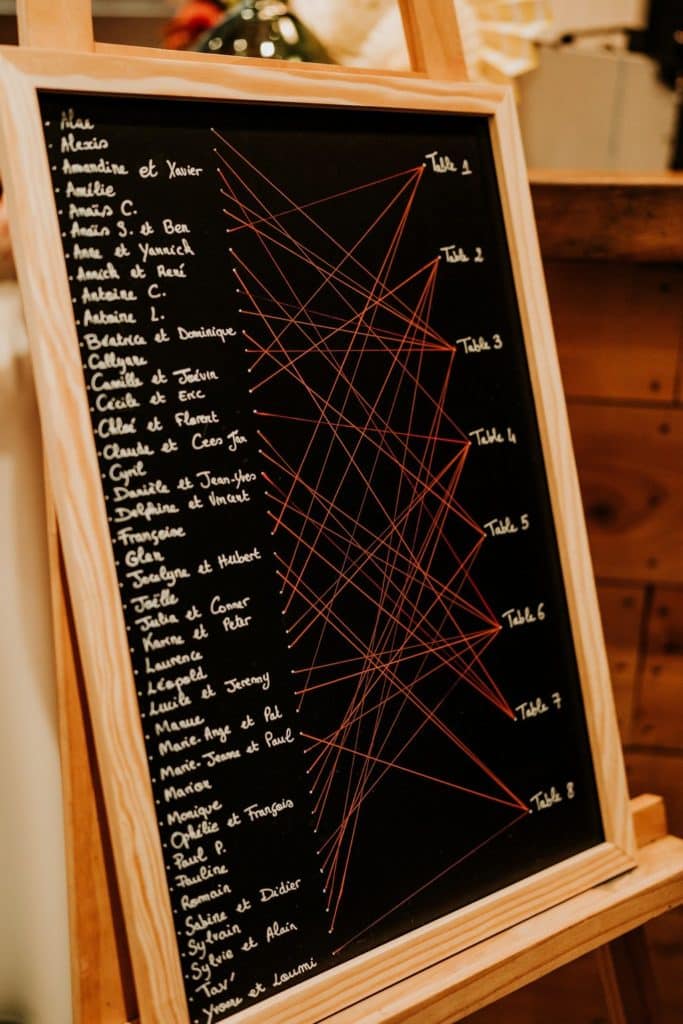 · Alae
· Alexis
· Amandine et Xavier
· Amélie
· Anaïs C.
· Anaïs S. et Ben
· Anne et Yannick
· Annick et René
· Antoine C.
· Antoine L.
· Béatrice et Dominique
· Callyane
· Camille et Joévin
· Cécile et Eric
· Chloé et Florent
· Claude et Cees Jan
· Cyril
· Danièle et Jean-Yves
· Delphine et Vincent
· Françoise
· Glen
· Jocelyne et Hubert
· Joëlle
· Julia et Conner
· Karine et Peter
· Laurence
· Léopold
· Lucile et Jeremy
· Manue
· Marie-Ange et Pat
· Marie-Jeanne et Paul
· Marion
· Monique
· Ophélie et François
· Paul P.
· Pauline
· Romain
· Sabine et Didier
· Sylvain
· Sylvie et Alain
· Tav'
· Yvonne et Loumi
Table 1
Table 2
Table 3
Table 4
Table 5
Table 6
Table 7
Table 8